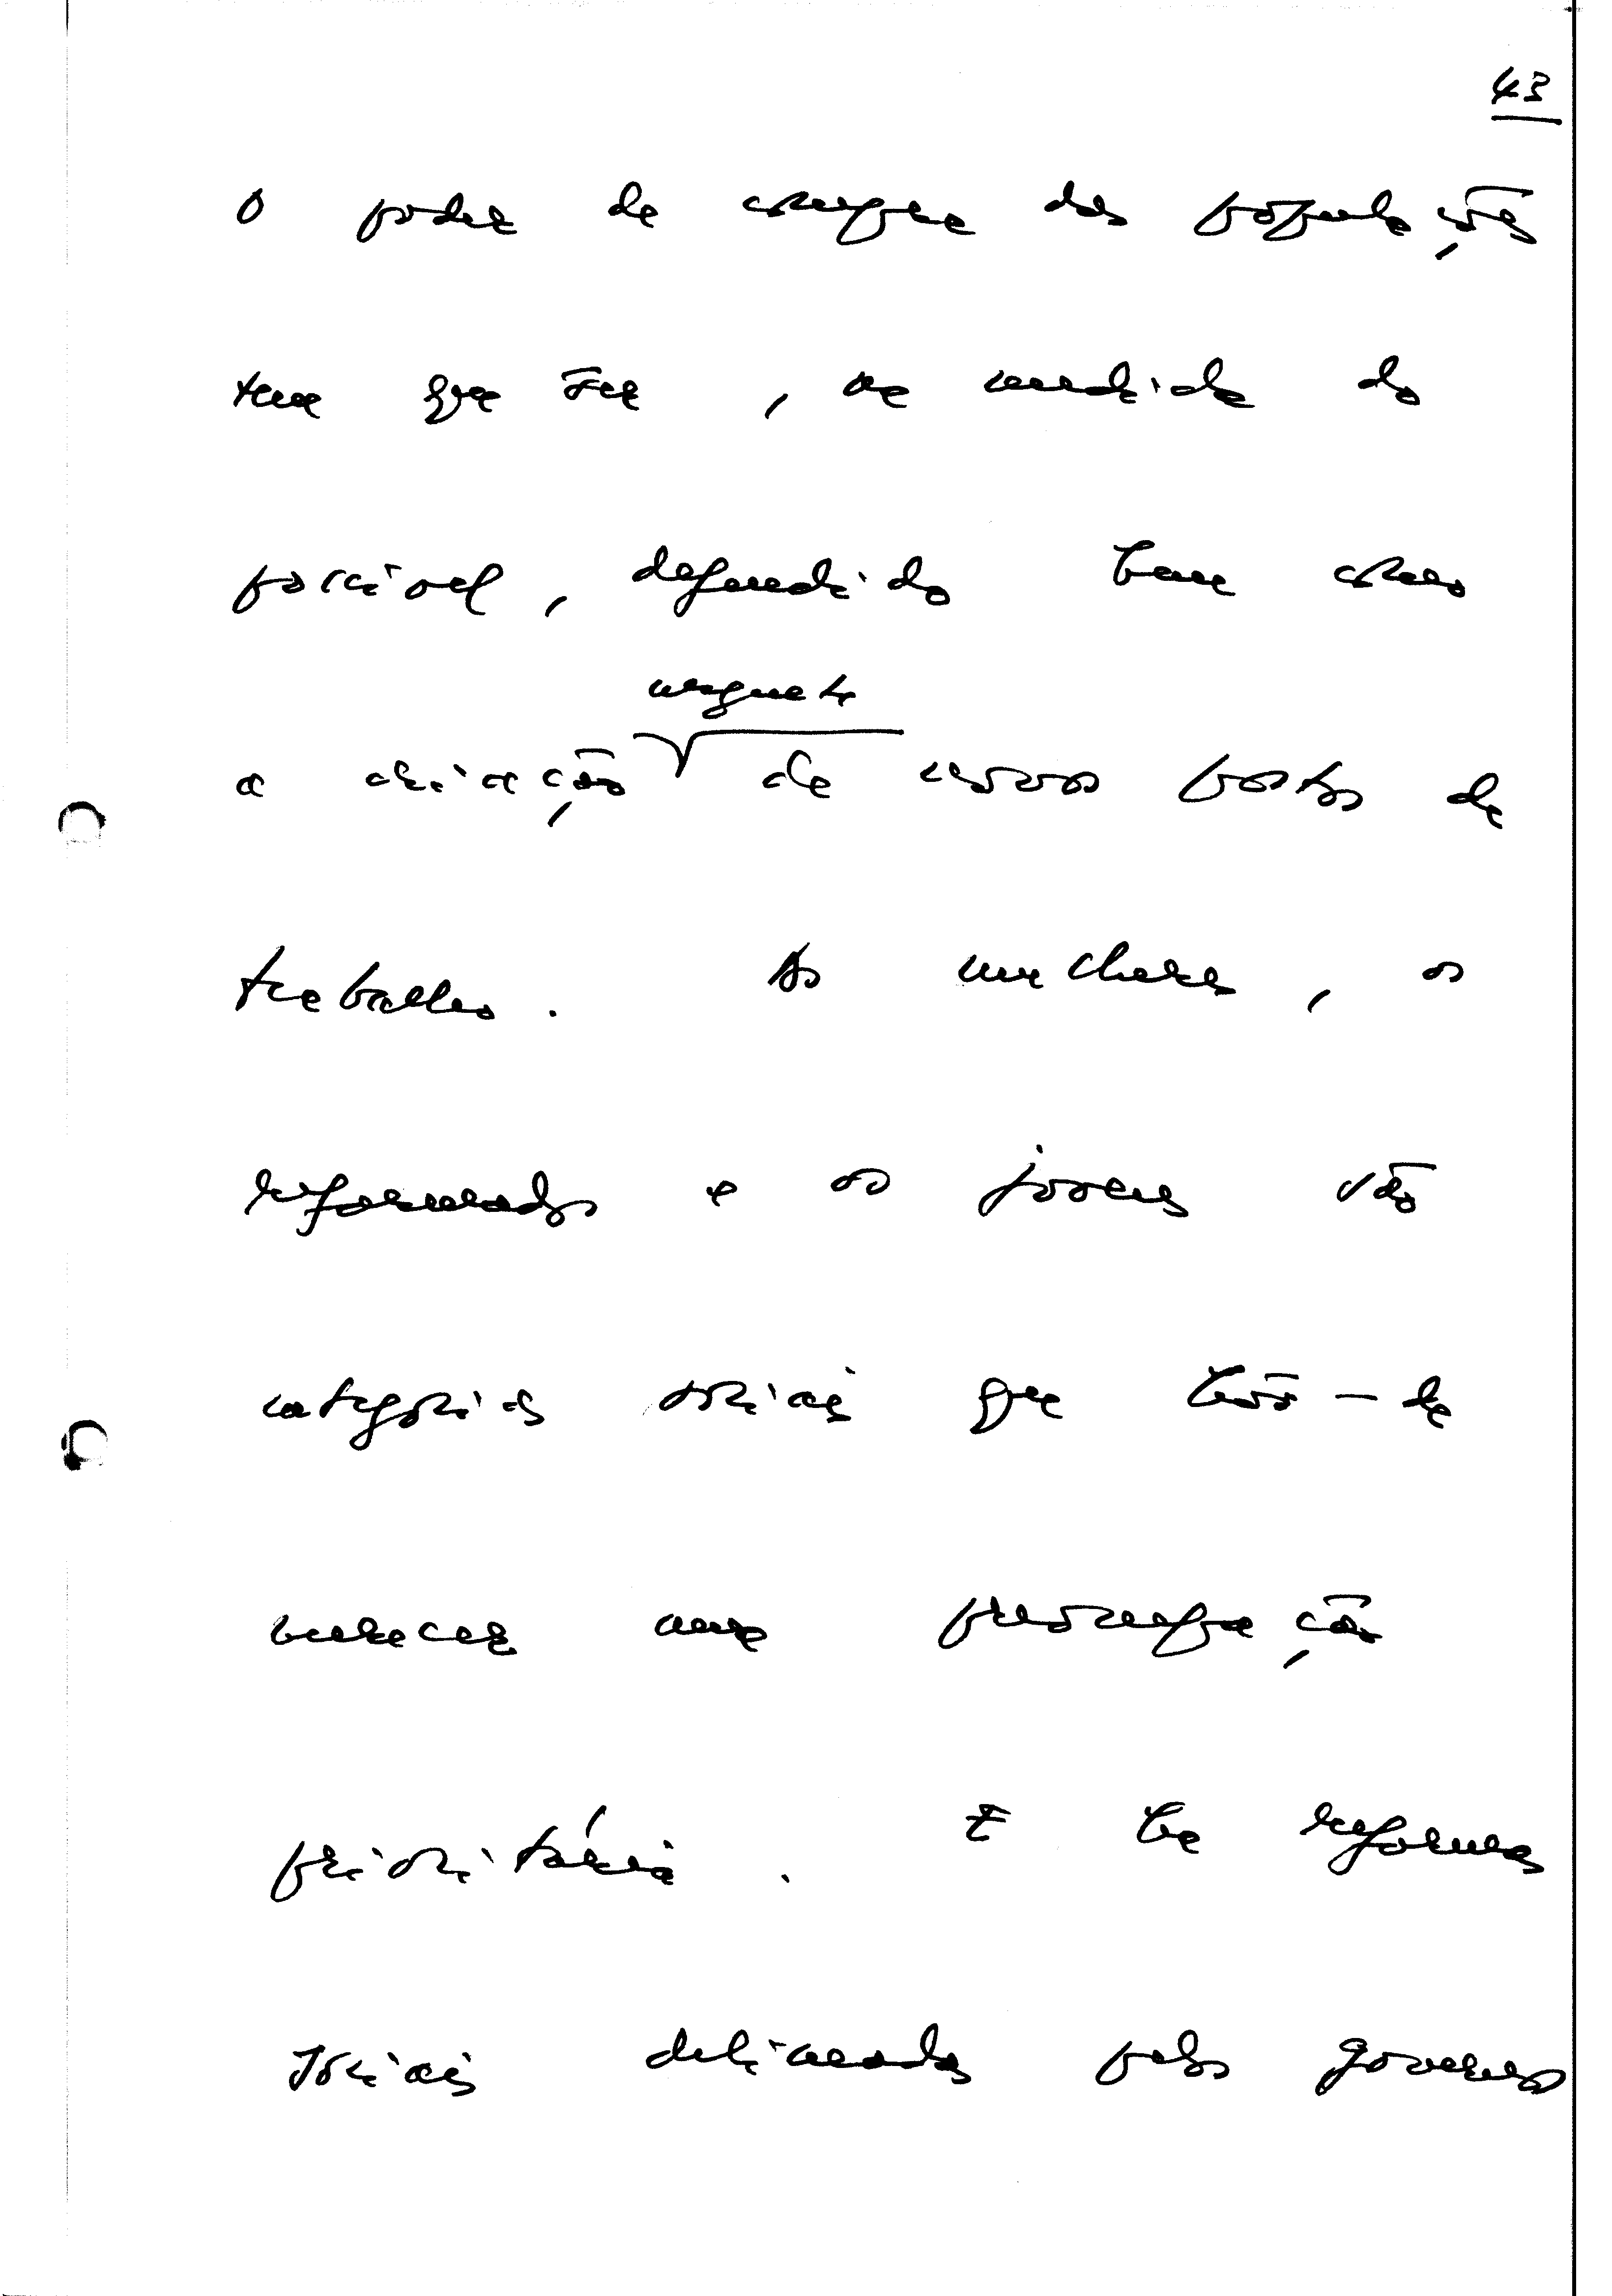 43
o poder de compra das populações
tem que ser, na medida do
possível, defendido bem como
urgente
a criação de novos postos de
trabalho. As mulheres, os
reformados e os jovens são
categorias sociais que terão-de
merecer uma preocupação
prioritária. E há reformas
sociais delineadas pelo governo